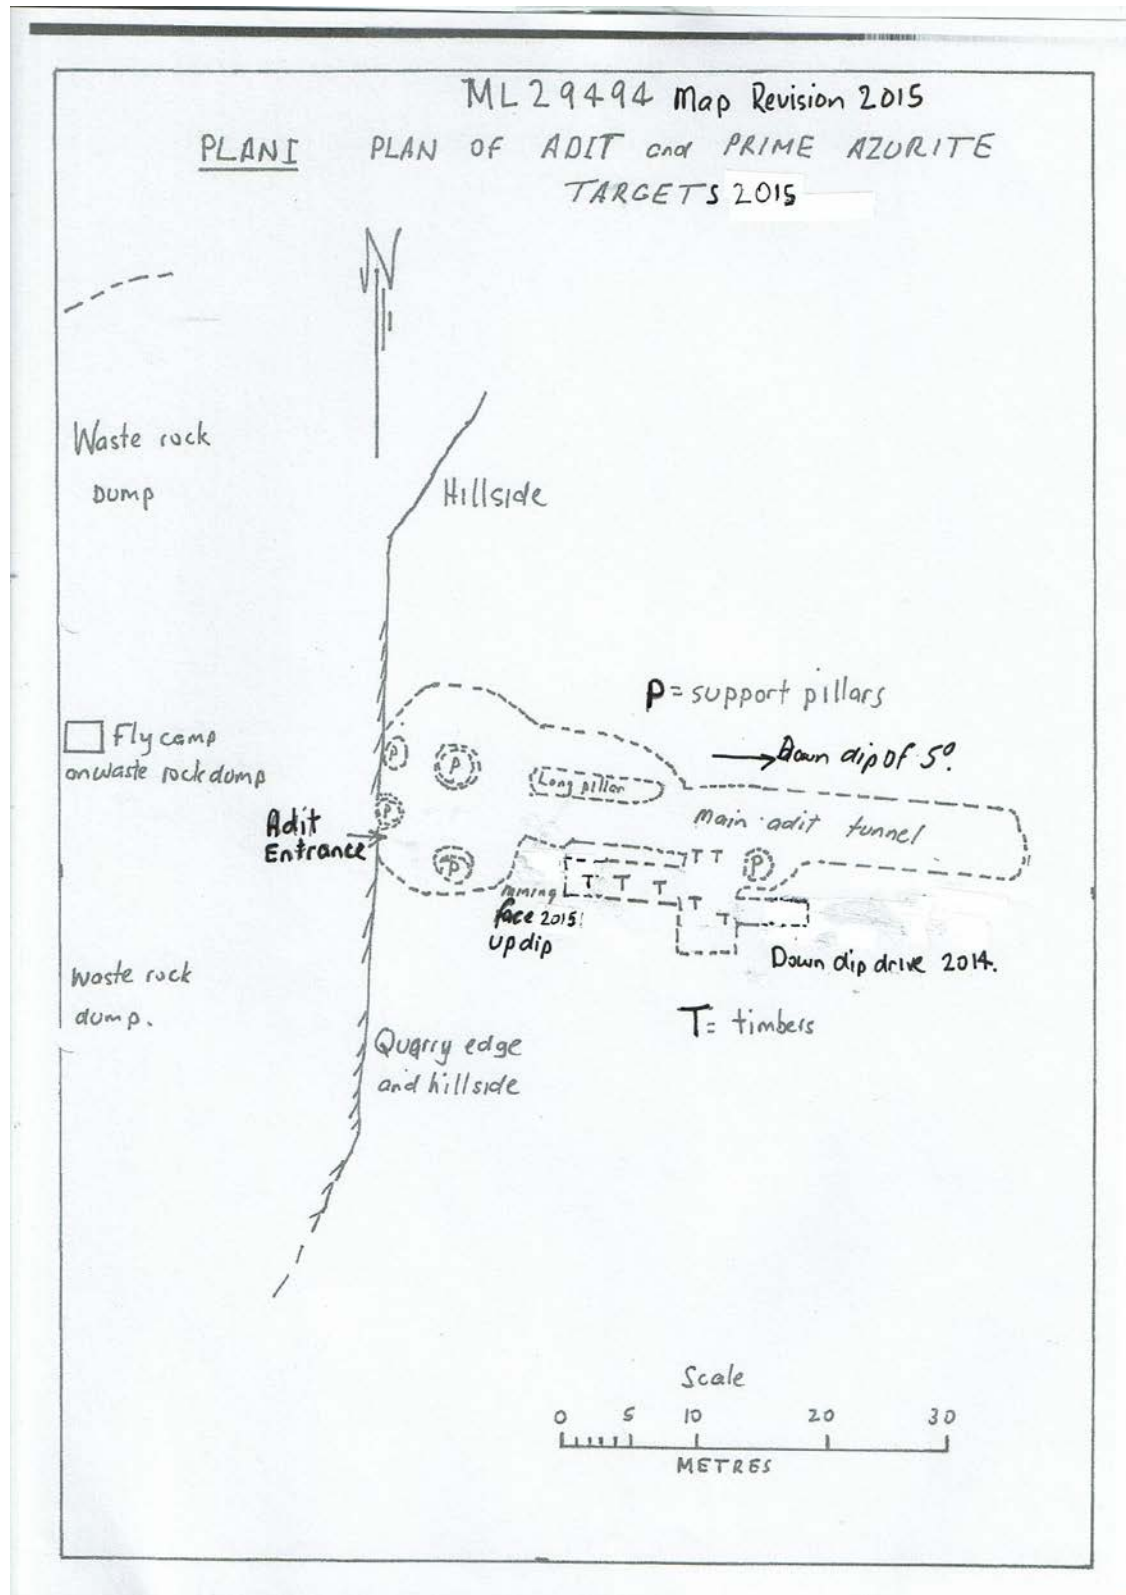 ML29494 Map Revision 2015
PLAN I PLAN OF ADIT and PRIME AZURITE
TARGETS 2015
N
Waste rock
Dump
Hillside
P = support pillars
Fly camp
on waste rock dump
Down dip of 5°.
P
P
Long pillar
P
Main adit tunnel
Adit
Entrance
T T
P
P
T T T
mining
face 2015
updip
T
T
Down dip drive 2014.
Waste rock
dump.
T = timbers
Quarry edge
and hillside
Scale
0 5 10 20 30
METRES